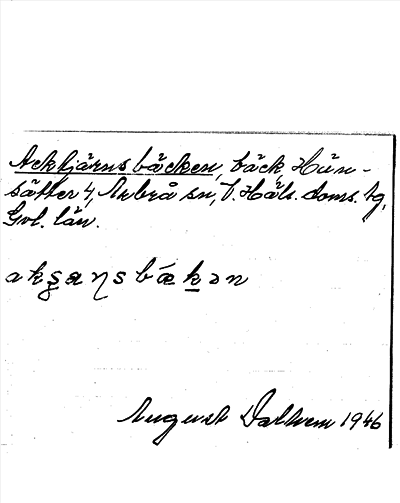 Ackkjärnsbäcken, bäck, Hün-
sätter 4, Arbrå sn, V. Häls. doms. tg,
Gvl. län.
akʂæɳsbækən
August Dalhem 1946